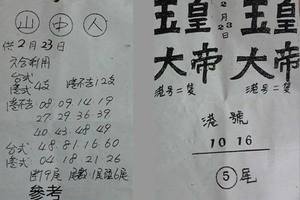 山中人
供2月23日
六合利用
台式
港式4支 港不吉12支
港不吉 08 09 14 19
27 29 36 39
40 43 48 49
台式 48.81.16.60
港式 04 18 21 26
尾數1尾強6尾
參考
玉皇 2月23日 玉皇
大帝 大帝
港号二隻 港号二隻
港號
10 16
5尾